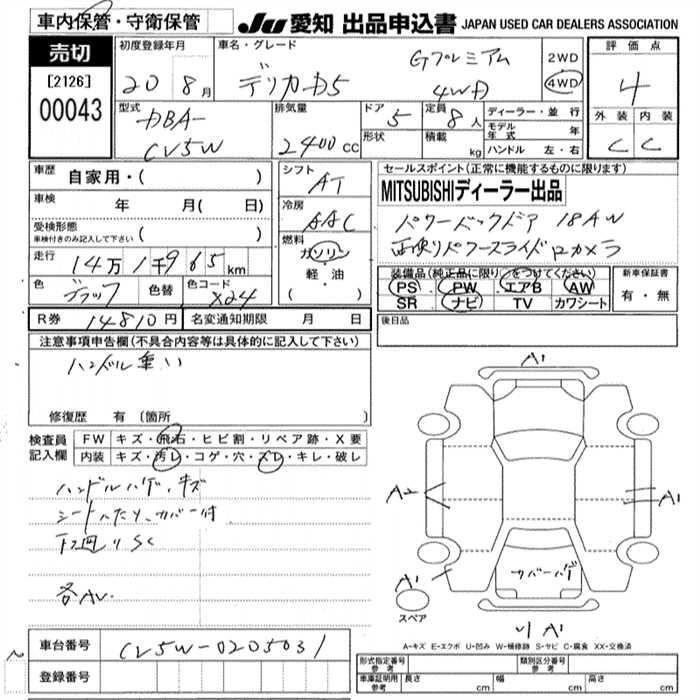 車内保管・守衛保管
JU 愛知 出品申込書 JAPAN USED CAR DEALERS ASSOCIATION
売切
[2126]
00043
初度登録年月
20 8月
車名・グレード
デリカD5
Gプレミアム
4WD
2WD
4WD
評価点
4
外装 内装
C C
型式
DBA-
CV5W
排気量
2400cc
ドア 5
形状
定員 8人
積載 kg
ディーラー・並行
モデル年式 年
ハンドル 左・右
車歴 自家用・( )
車検 年 月( 日)
受検形態
車検付きのみ記入して下さい ( )
走行 14万1千965km
色 ブラック 色替 色コード X24
シフト AT
冷房 AAC
燃料 ガソリン
軽・油
( )
セールスポイント(正常に機能するものに限ります)
MITSUBISHIディーラー出品
パワーバックドア 18AW
両側パワースライド Bカメラ
装備品(純正品に限り○をつけてください)
PS PW エアB AW
SR ナビ TV カワシート
新車保証書
有・無
R券 14810円 名変通知期限 月 日
後日品
注意事項申告欄(不具合内容等は具体的に記入して下さい)
ハンドル重い
修復歴 有 (箇所 )
検査員記入欄
FW キズ・飛石・ヒビ割・リペア跡・X要
内装 キズ・汚レ・コゲ・穴・スレ・キレ・破レ
ハンドルハゲ、キズ
シートヘたり、カバー付
下回りSC
各AU
A1
A2
A1
A1
カバーハゲ
A1
スペア
A-キズ E-エクボ U-凹み W-補修跡 S-サビ C-腐食 XX-交換済
車台番号 CV5W-0205031
登録番号
形式指定番号 参考
類別区分番号 参考
車庫証明用 参考 長さ cm 幅 cm 高さ cm